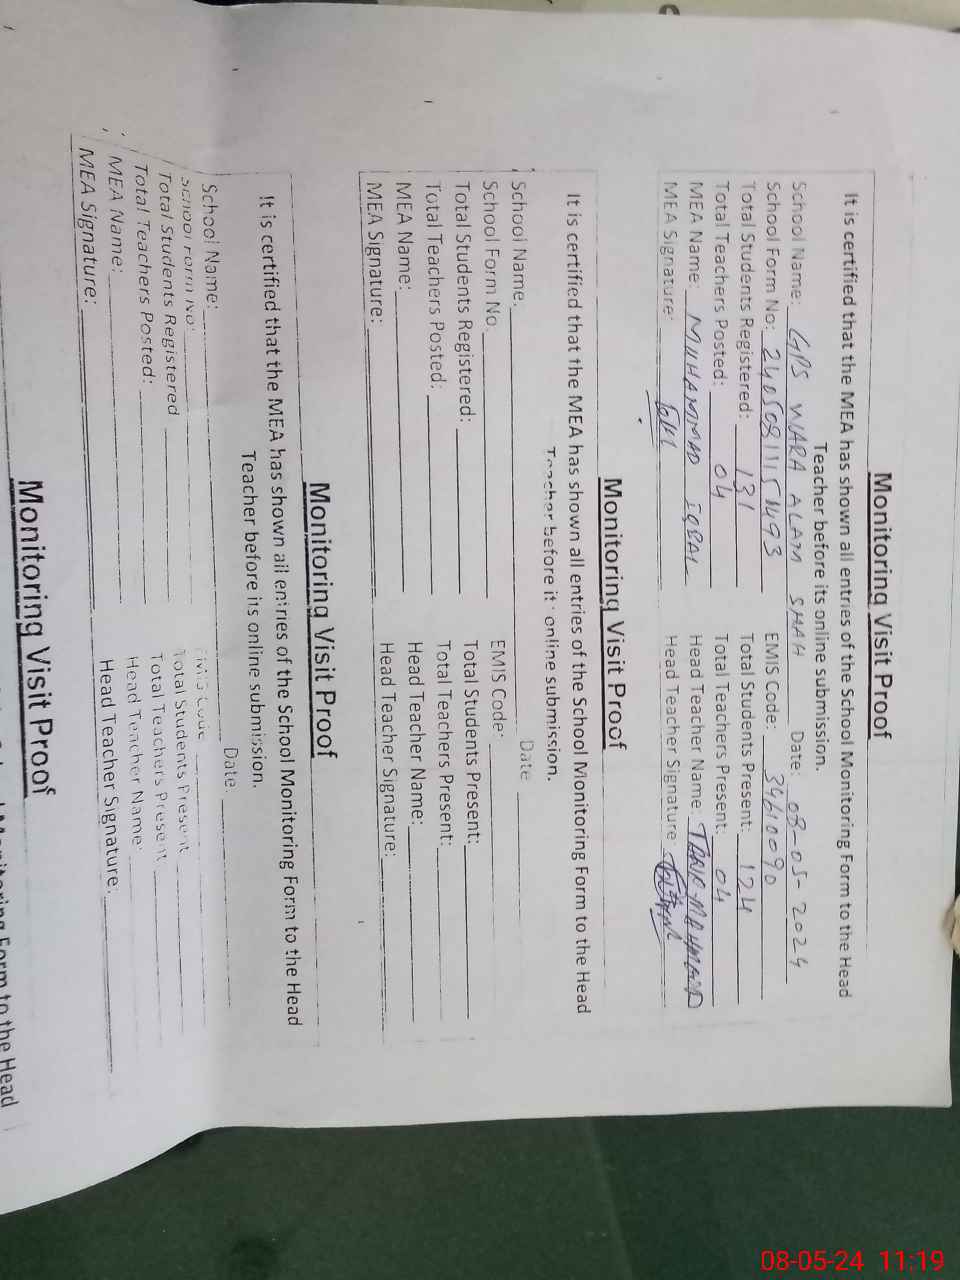 Monitoring Visit Proof
It is certified that the MEA has shown all entries of the School Monitoring Form to the Head
Teacher before its online submission.
School Name: GPS WARA ALAM SHAH Date: 08-05-2024
School Form No: EMIS Code: 34610090
Total Students Registered: 131 Total Students Present: 124
Total Teachers Posted: 04 Total Teachers Present: 04
MEA Name: MUHAMMAD IQBAL Head Teacher Name: TARIR MEHMOOD
MEA Signature: Head Teacher Signature:
Monitoring Visit Proof
It is certified that the MEA has shown all entries of the School Monitoring Form to the Head
Teacher before it online submission.
School Name. Date
School Form No. EMIS Code:
Total Students Registered: Total Students Present:
Total Teachers Posted: Total Teachers Present:
MEA Name: Head Teacher Name:
MEA Signature: Head Teacher Signature:
Monitoring Visit Proof
It is certified that the MEA has shown all entries of the School Monitoring Form to the Head
Teacher before its online submission.
School Name: Date:
School Form No: Code
Total Students Registered Total Students Present
Total Teachers Posted: Total Teachers Present
MEA Name: Head Teacher Name:
MEA Signature: Head Teacher Signature:
Monitoring Visit Proof
Monitoring Form to the Head
08-05-24 11:19